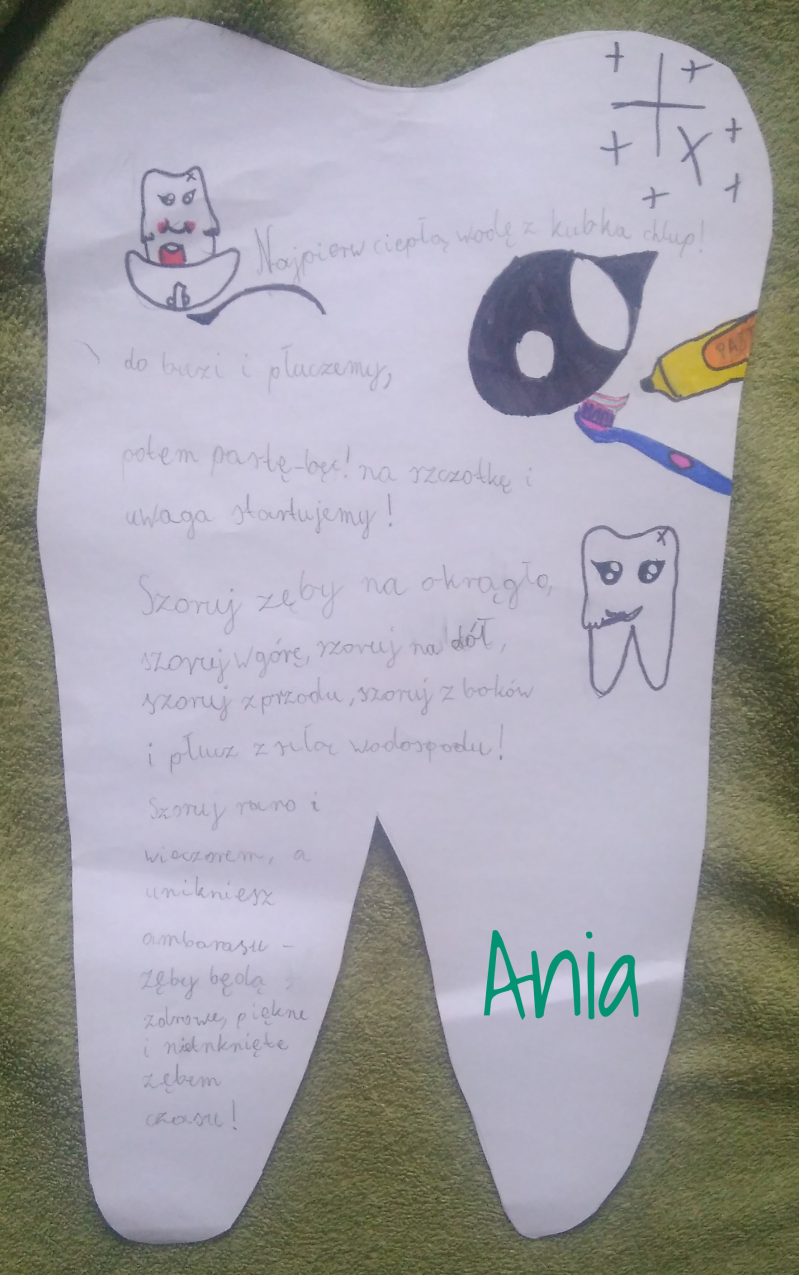 Najpierw ciepłą wodę z kubka chlup!
do buzi i płuczemy,
PAST
potem pastę-bęc! na szczotkę i
uwaga startujemy!
Szoruj zęby na okrągło,
szoruj w górę, szoruj na dół,
szoruj z przodu, szoruj z boków
i płucz z siłą wodospadu!
Szoruj rano i
wieczorem, a
unikniesz
ambarasu -
zęby będą
zdrowe, piękne
i
zębem
czasu!
Ania